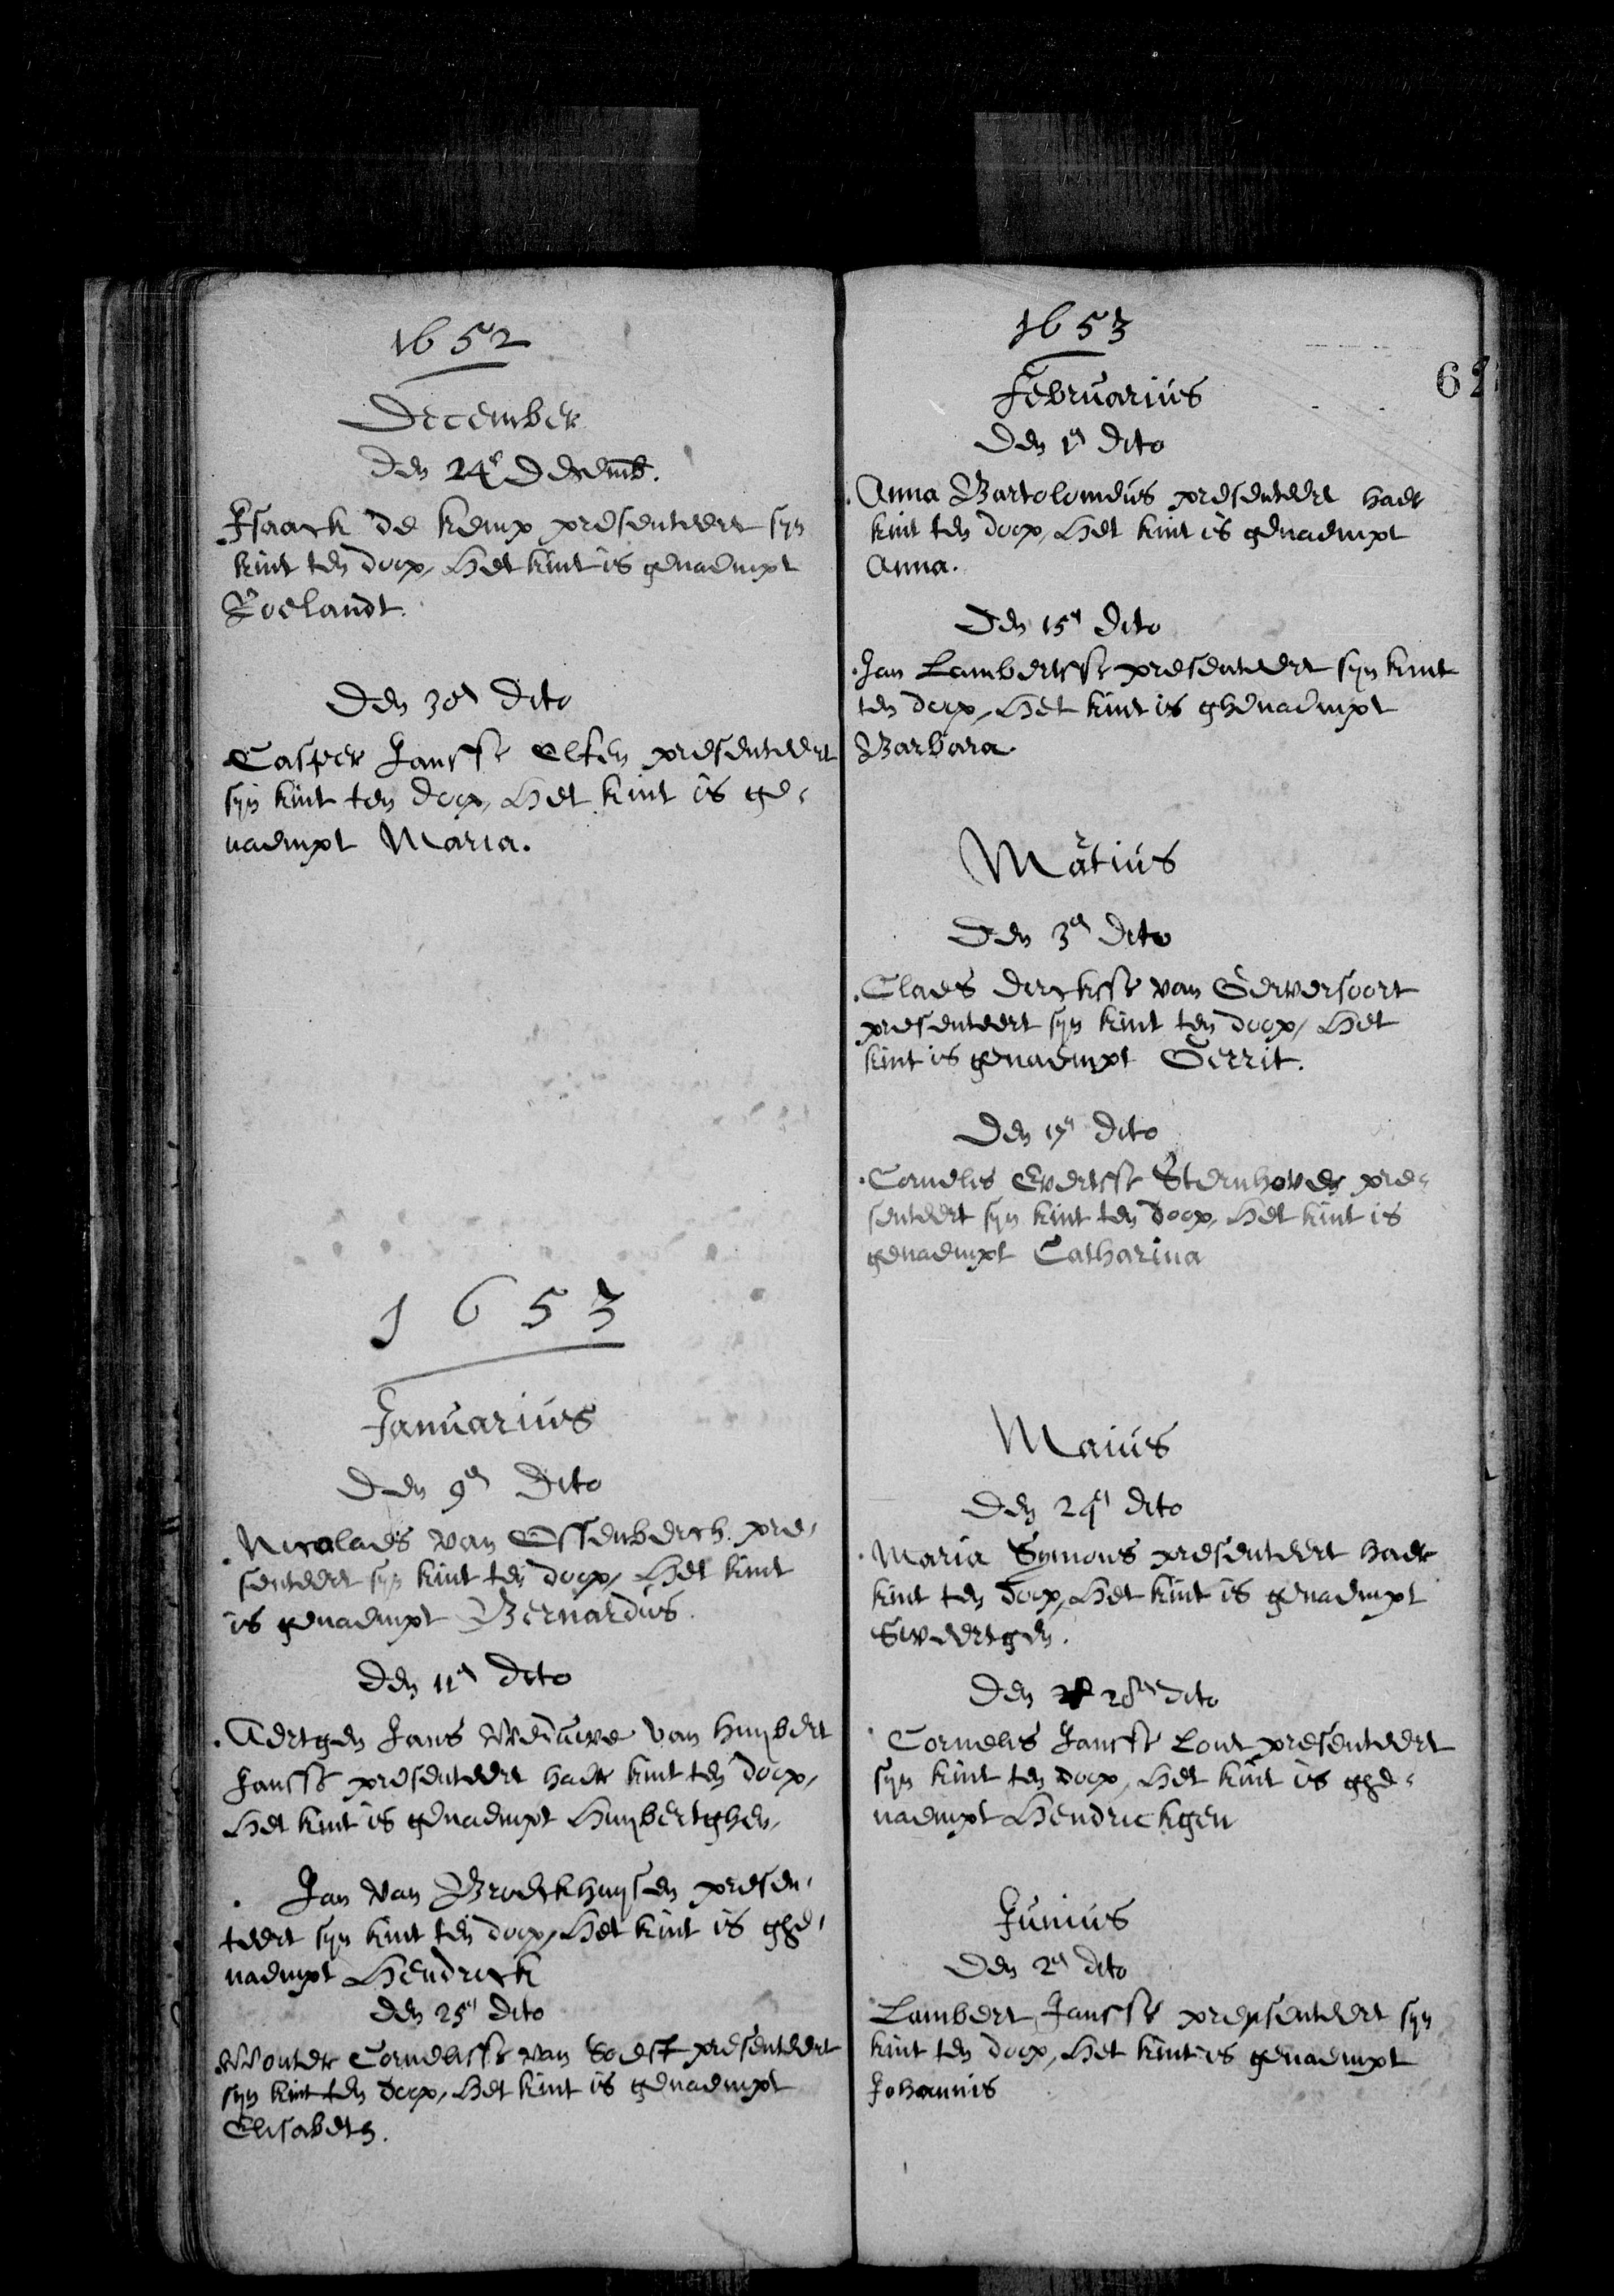 1652
December
Den 24e Decemb.
Isaack de kemp presenteert syn
kint ten doop, Het kint is genaempt
Roelandt.
Den 30en dito
Casper Jansse Elken presenteert
syn kint ten doop, Het kint is ge-
naempt Maria.
1653
Januarius
Den 9en dito
Nicolaes van Essenberch pre-
senteert syn kint ten doop, Het kint
is genaempt Bernardus.
Den 11en dito
Aertgen Jans weduwe van Huybert
Jansse presenteert haer kint ten doop,
Het kint is genaempt Huybertghen,
Jan van Broeckhuysen presen-
teert syn kint ten doop, Het kint is ghe-
naempt Hendrick
Den 25en dito
Wouter Cornelisse van Soest presenteert
syn kint ten doop, Het kint is genaempt
Elisabeth.
1653
62
Februarius
Den 1en dito
Anna Bartolomeus presenteert haer
kint ten doop, Het kint is genaempt
Anna.
Den 15en dito
Jan Lambertsse presenteert syn kint
ten doop, Het kint is ghenaempt
Barbara.
Martius
Den 3en dito
Claes Dircksse van Gerversoort
presenteert syn kint ten doop, Het
kint is genaempt Gerrit.
Den 17en dito
Cornelis Evertsse Sternhoven pre-
senteert syn kint ten doop, Het kint is
genaempt Catharina
Maius
Den 24en dito
Maria Symons presenteert haer
kint ten doop, Het kint is genaempt
Sweertgen.
Den 28en dito
Cornelis Jansse Lont presenteert
syn kint ten doop, Het kint is ghe-
naempt Hendrickgen
Junius
Den 2en dito
Lambert Jansse presenteert syn
kint ten doop, Het kint is genaempt
Johannis